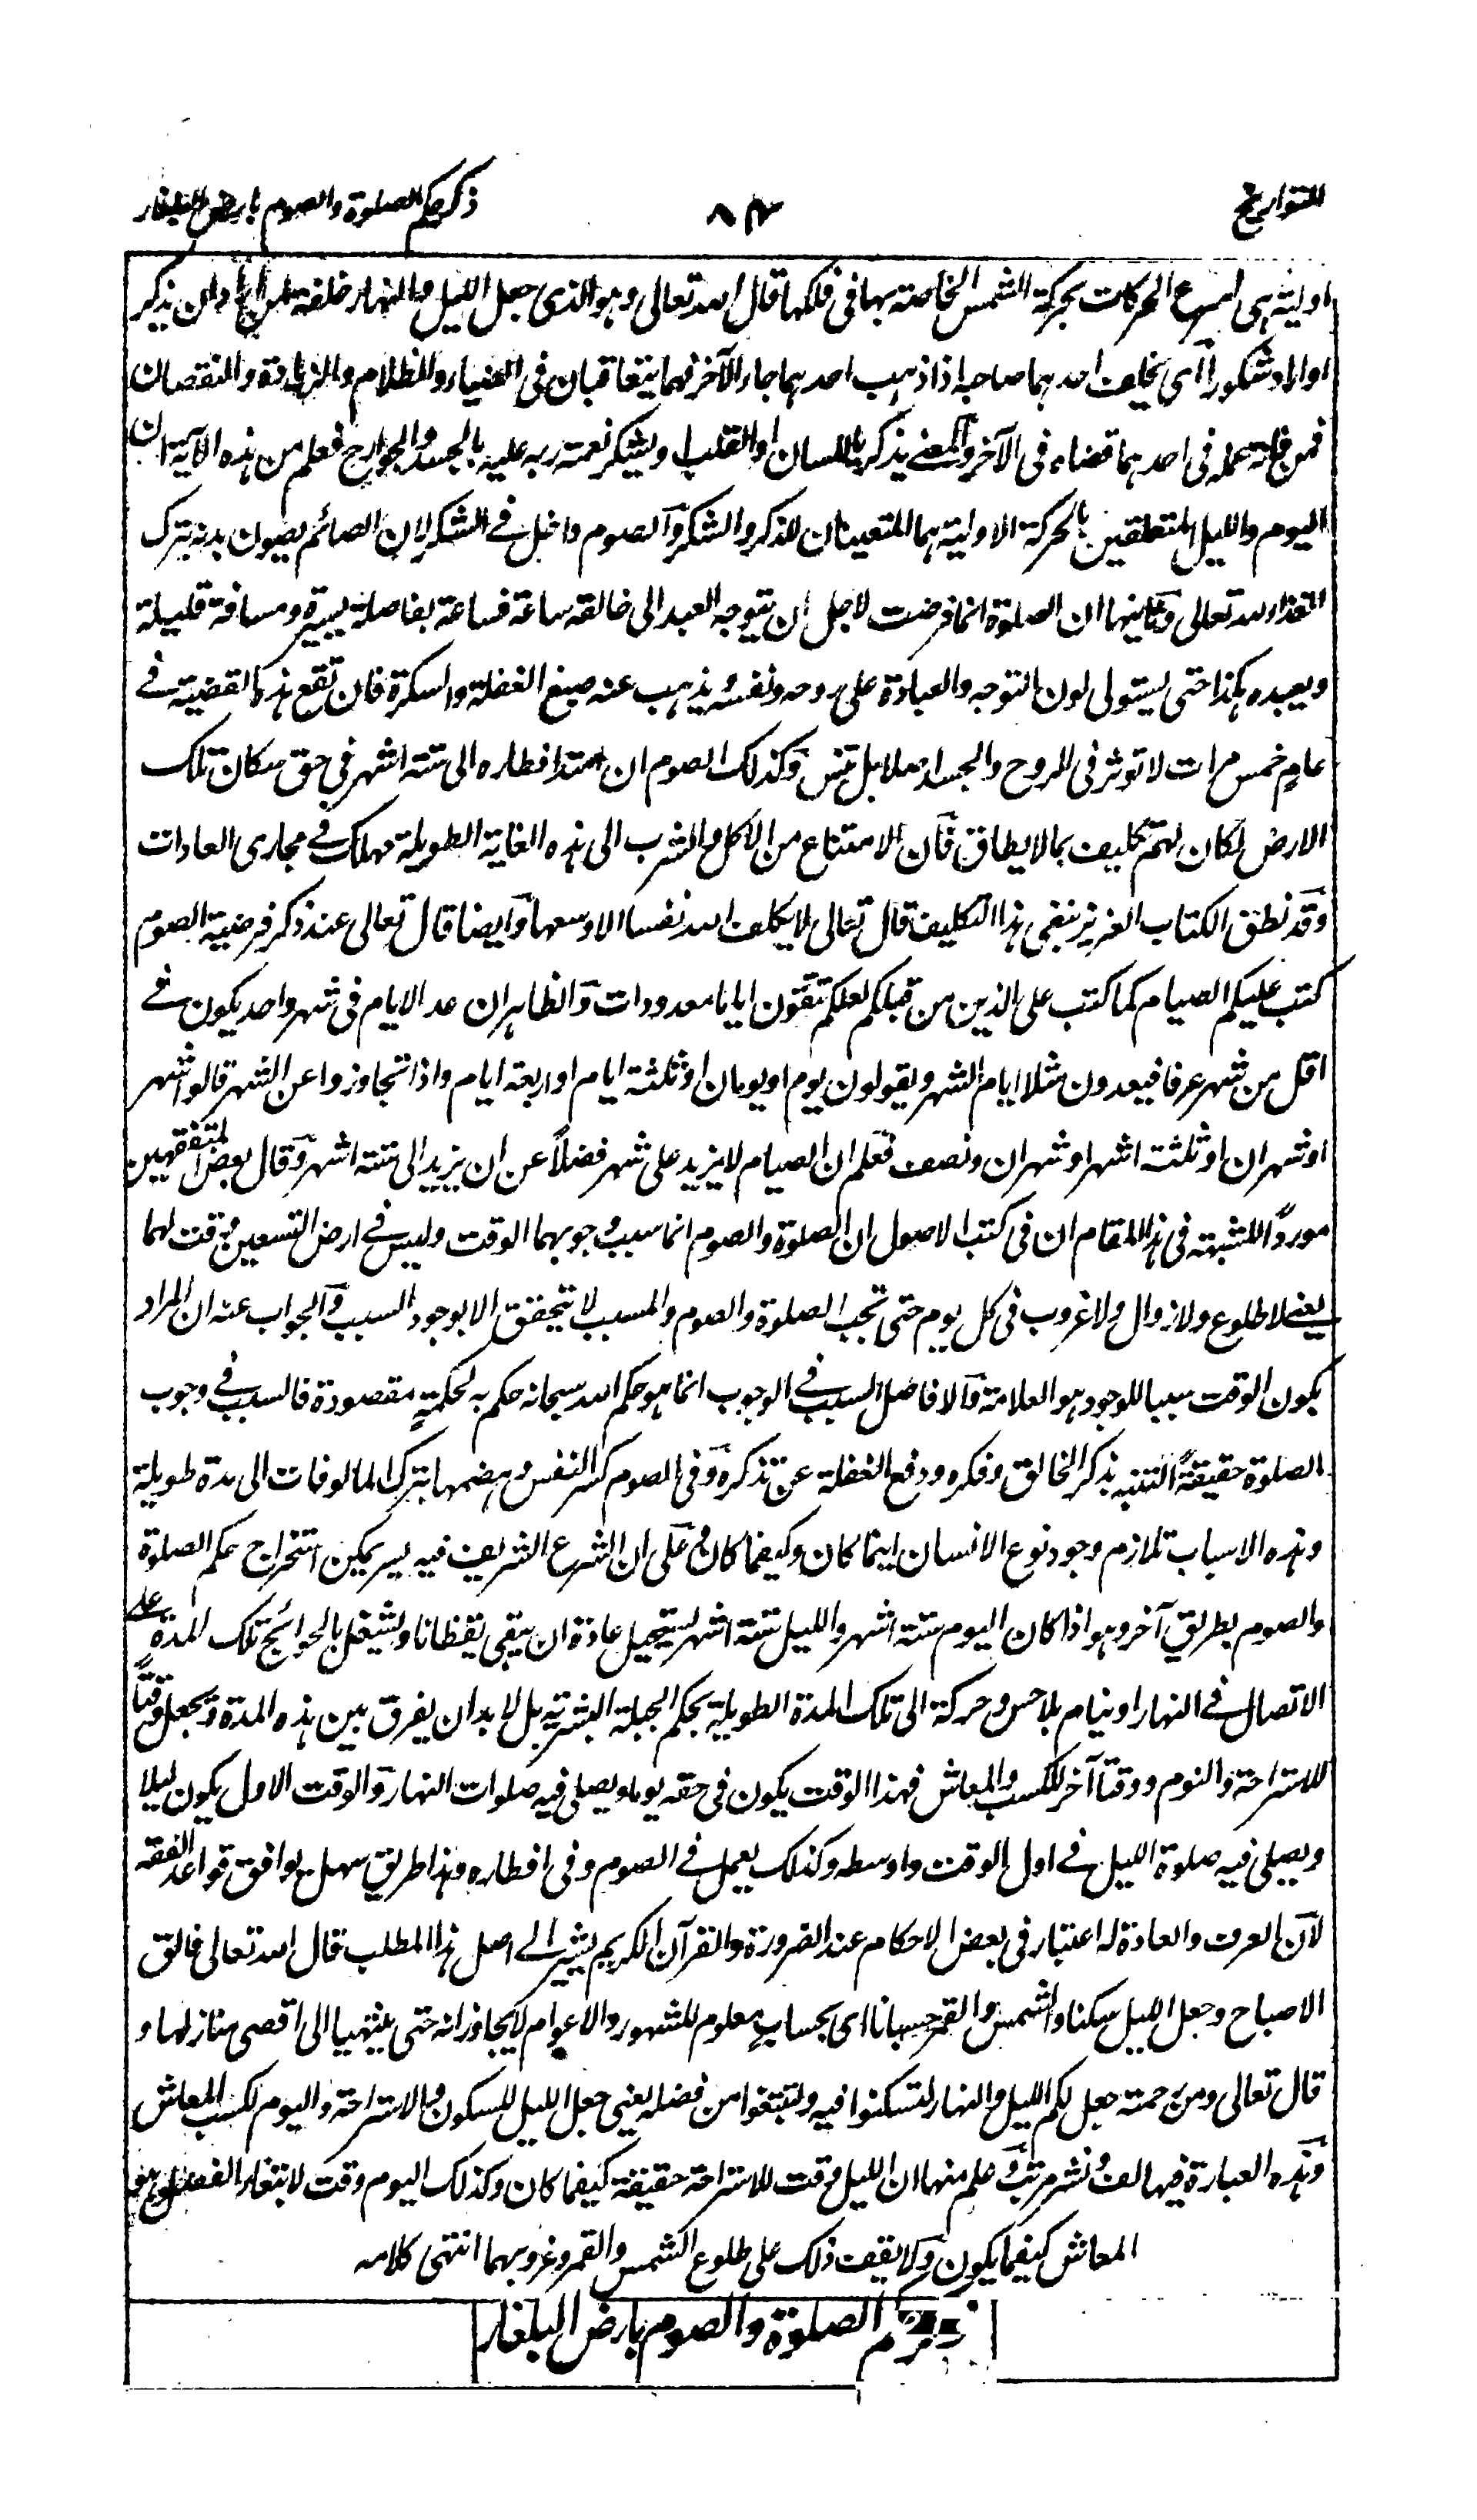 التواريخ
٨٣
ذكر حكم الصلوة والصوم بارض البلغار
اولية هى اسرع الحركات بحركة الشمس الخاصة بها فى فلكها قال الله تعالى وهو الذى جعل الليل والنهار خلفة لمن اراد ان يذكر
او اراد شكورا اى يخلف احدهما صاحبه اذا ذهب احدهما جاء الآخر فهما يتعاقبان فى الضياء والظلام والزيادة والنقصان
فمن فاته عمله فى احدهما قضاه فى الآخر والمعنى يذكر باللسان او القلب ويشكر نعمة ربه عليه بالجسد والجوارح فعلم من هذه الآية ان
اليوم والليل المتعلقين بالحركة الاولية هما المتعينان للذكر والشكر والصوم داخل فى الشكر لان الصائم يصون بدنه بترك
الغذاء لله تعالى وثانيها ان الصلوة انما فرضت لاجل ان يتوجه العبد الى خالقه ساعة فساعة بفاصلة يسيرة ومسافة قليلة
ويعبده هكذا حتى يستولى لون التوجه والعبادة على روحه ونفسه ويذهب عنه صبغ الغفلة والسكرة فان تقع هذه القضية فى
عام خمس مرات لا توثر فى الروح والجسد اصلا بل تنس وكذلك الصوم ان امتد افطاره الى ستة اشهر فى حق سكان تلك
الارض لكان لهم تكليف بمالا يطاق فان الامتناع من الاكل والشرب الى هذه الغاية الطويلة مهلك فى مجارى العادات
وقد نطق الكتاب العزيز بنفى هذا التكليف قال تعالى لا يكلف الله نفسا الا وسعها وايضا قال تعالى عند ذكر فرضية الصوم
كتب عليكم الصيام كما كتب على الذين من قبلكم لعلكم تتقون اياما معدودات والظاهر ان عد الايام فى شهر واحد يكون فى
اقل من شهر عرفا فيعدون مثلا ايام الشهر ويقولون يوم او يومان او ثلثة ايام او اربعة ايام واذا تجاوزوا عن الشهر قالوا شهر
او شهران او ثلثة اشهر او شهران ونصف فعلم ان الصيام لا يزيد على شهر فضلاً عن ان يزيد الى ستة اشهر وقال بعض المتفقهين
مورداً للشبهة فى هذا المقام ان فى كتب الاصول ان الصلوة والصوم انما سبب وجوبهما الوقت وليس فى ارض التسعين وقت لهما
يعنى لا طلوع ولا زوال ولا غروب فى كل يوم حتى تجب الصلوة والصوم والمسبب لا يتحقق الا بوجود السبب والجواب عنه ان المراد
بكون الوقت سببا للوجود هو العلامة والا فاصل السبب فى الوجوب انما هو حكم الله سبحانه حكم به لحكمةٍ مقصودة فالسبب فى وجوب
الصلوة حقيقةً التنبه بذكر الخالق وفكره ودفع الغفلة عن تذكره وفى الصوم كسر النفس وهضمها بترك المالوفات الى مدة طويلة
وهذه الاسباب تلازم وجود نوع الانسان اينما كان وكيفما كان وعلى ان الشرع الشريف فيه يسر يمكن استخراج حكم الصلوة
والصوم بطريق آخر وهو اذا كان اليوم ستة اشهر والليل ستة اشهر يستحيل عادة ان يبقى يقظانا ويشتغل بالحوائج تلك المدة على
الاتصال فى النهار او ينام بلا حس وحركة الى تلك المدة الطويلة بحكم الجبلة البشرية بل لا بد ان يفرق بين هذه المدة ويجعل وقتاً
للاستراحة والنوم ووقتا آخر للكسب والمعاش فهذا الوقت يكون فى حقه يوما ويصلى فيه صلوات النهار والوقت الاول يكون ليلا
ويصلى فيه صلوة الليل فى اول الوقت واوسطه وكذلك يعمل فى الصوم وفى افطاره وهذا طريق سهل يوافق قواعد الفقه
لان العرف والعادة له اعتبار فى بعض الاحكام عند الضرورة والقرآن الكريم يشير الى اصل هذا المطلب قال الله تعالى فالق
الاصباح وجعل الليل سكنا والشمس والقمر حسبانا اى بحساب معلوم للشهور والاعوام لا يجاوزانه حتى ينتهيا الى اقصى منازلها و
قال تعالى ومن رحمته جعل لكم الليل والنهار لتسكنوا فيه ولتبتغوا من فضله يعنى جعل الليل للسكون والاستراحة واليوم لكسب المعاش
وهذه العبارة فيها لف ونشر مرتب وعلم منها ان الليل وقت للاستراحة حقيقة كيفما كان وكذلك اليوم وقت لابتغاء الفضل
المعاش كيفما يكون ولا يقف ذلك على طلوع الشمس والقمر وغروبهما انتهى كلامه
ذكر حكم الصلوة والصوم بارض البلغار